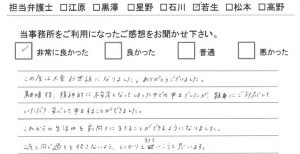 担当弁護士 □江原 □黒澤 □星野 □石川 ☑若生 □松本 □高野
当事務所をご利用になったご感想をお聞かせ下さい。
☑ 非常に良かった □ 良かった □ 普通 □ 悪かった
この度は大変お世話になりました。ありがとうございました。
離婚後、精神的に不安定となってしまった中での申立でしたが、親身にご対応して
いただき、安心して申立することができました。
これからの生活を前向きに考えることができるようになりました。
二度と同じ過ちを犯さないよう、しっかりと歩いていこうと思います。